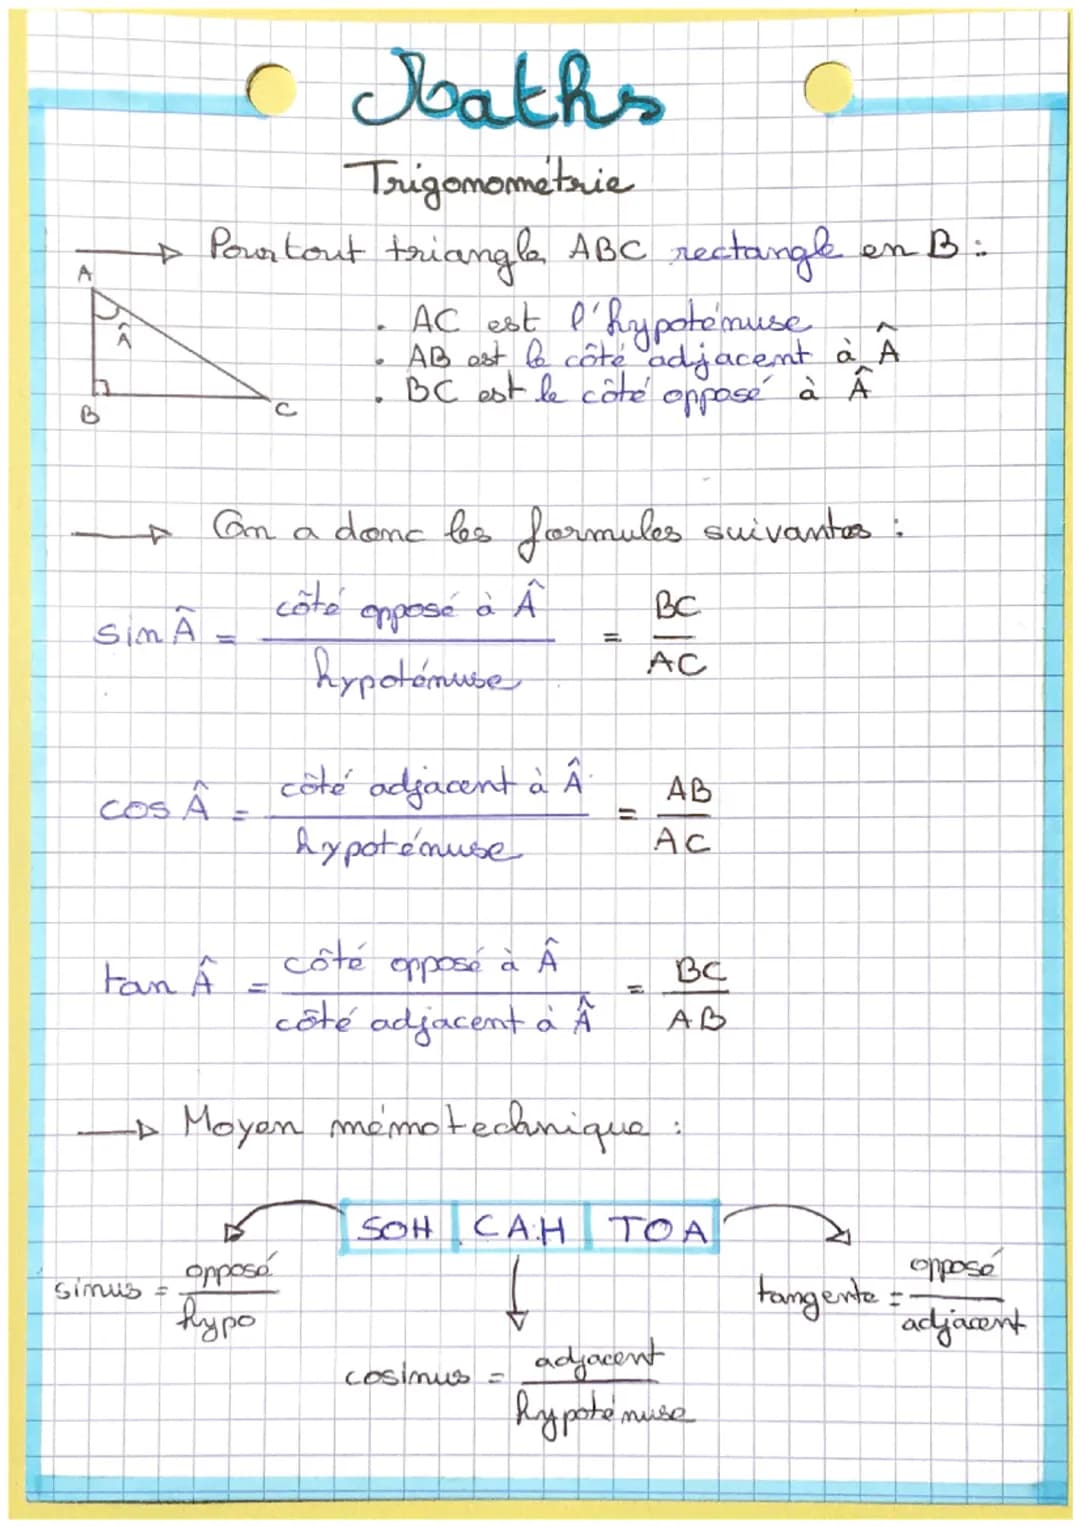 Maths
Trigonométrie
→ Pour tout triangle ABC rectangle en B :
A
Â
B
C
• AC est l'hypoténuse
• AB est le côté adjacent à Â
• BC est le côté opposé à Â
→ On a donc les formules suivantes :
sin Â = côté opposé à Â / hypoténuse = BC / AC
cos Â = côté adjacent à Â / hypoténuse = AB / AC
tan Â = côté opposé à Â / côté adjacent à Â = BC / AB
→ Moyen mémotechnique :
SOH CAH TOA
sinus = opposé / hypo
cosinus = adjacent / hypoténuse
tangente = opposé / adjacent